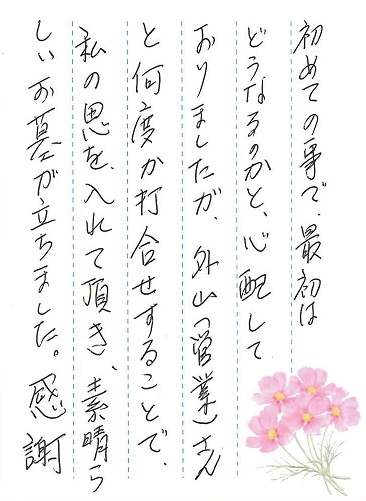 初めての事で、最初は
どうなるのかと、心配して
おりましたが、外山(営業)さん
と何度か打合せすることで、
私の思を、入れて頂き、素晴ら
しいお墓が立ちました。感謝